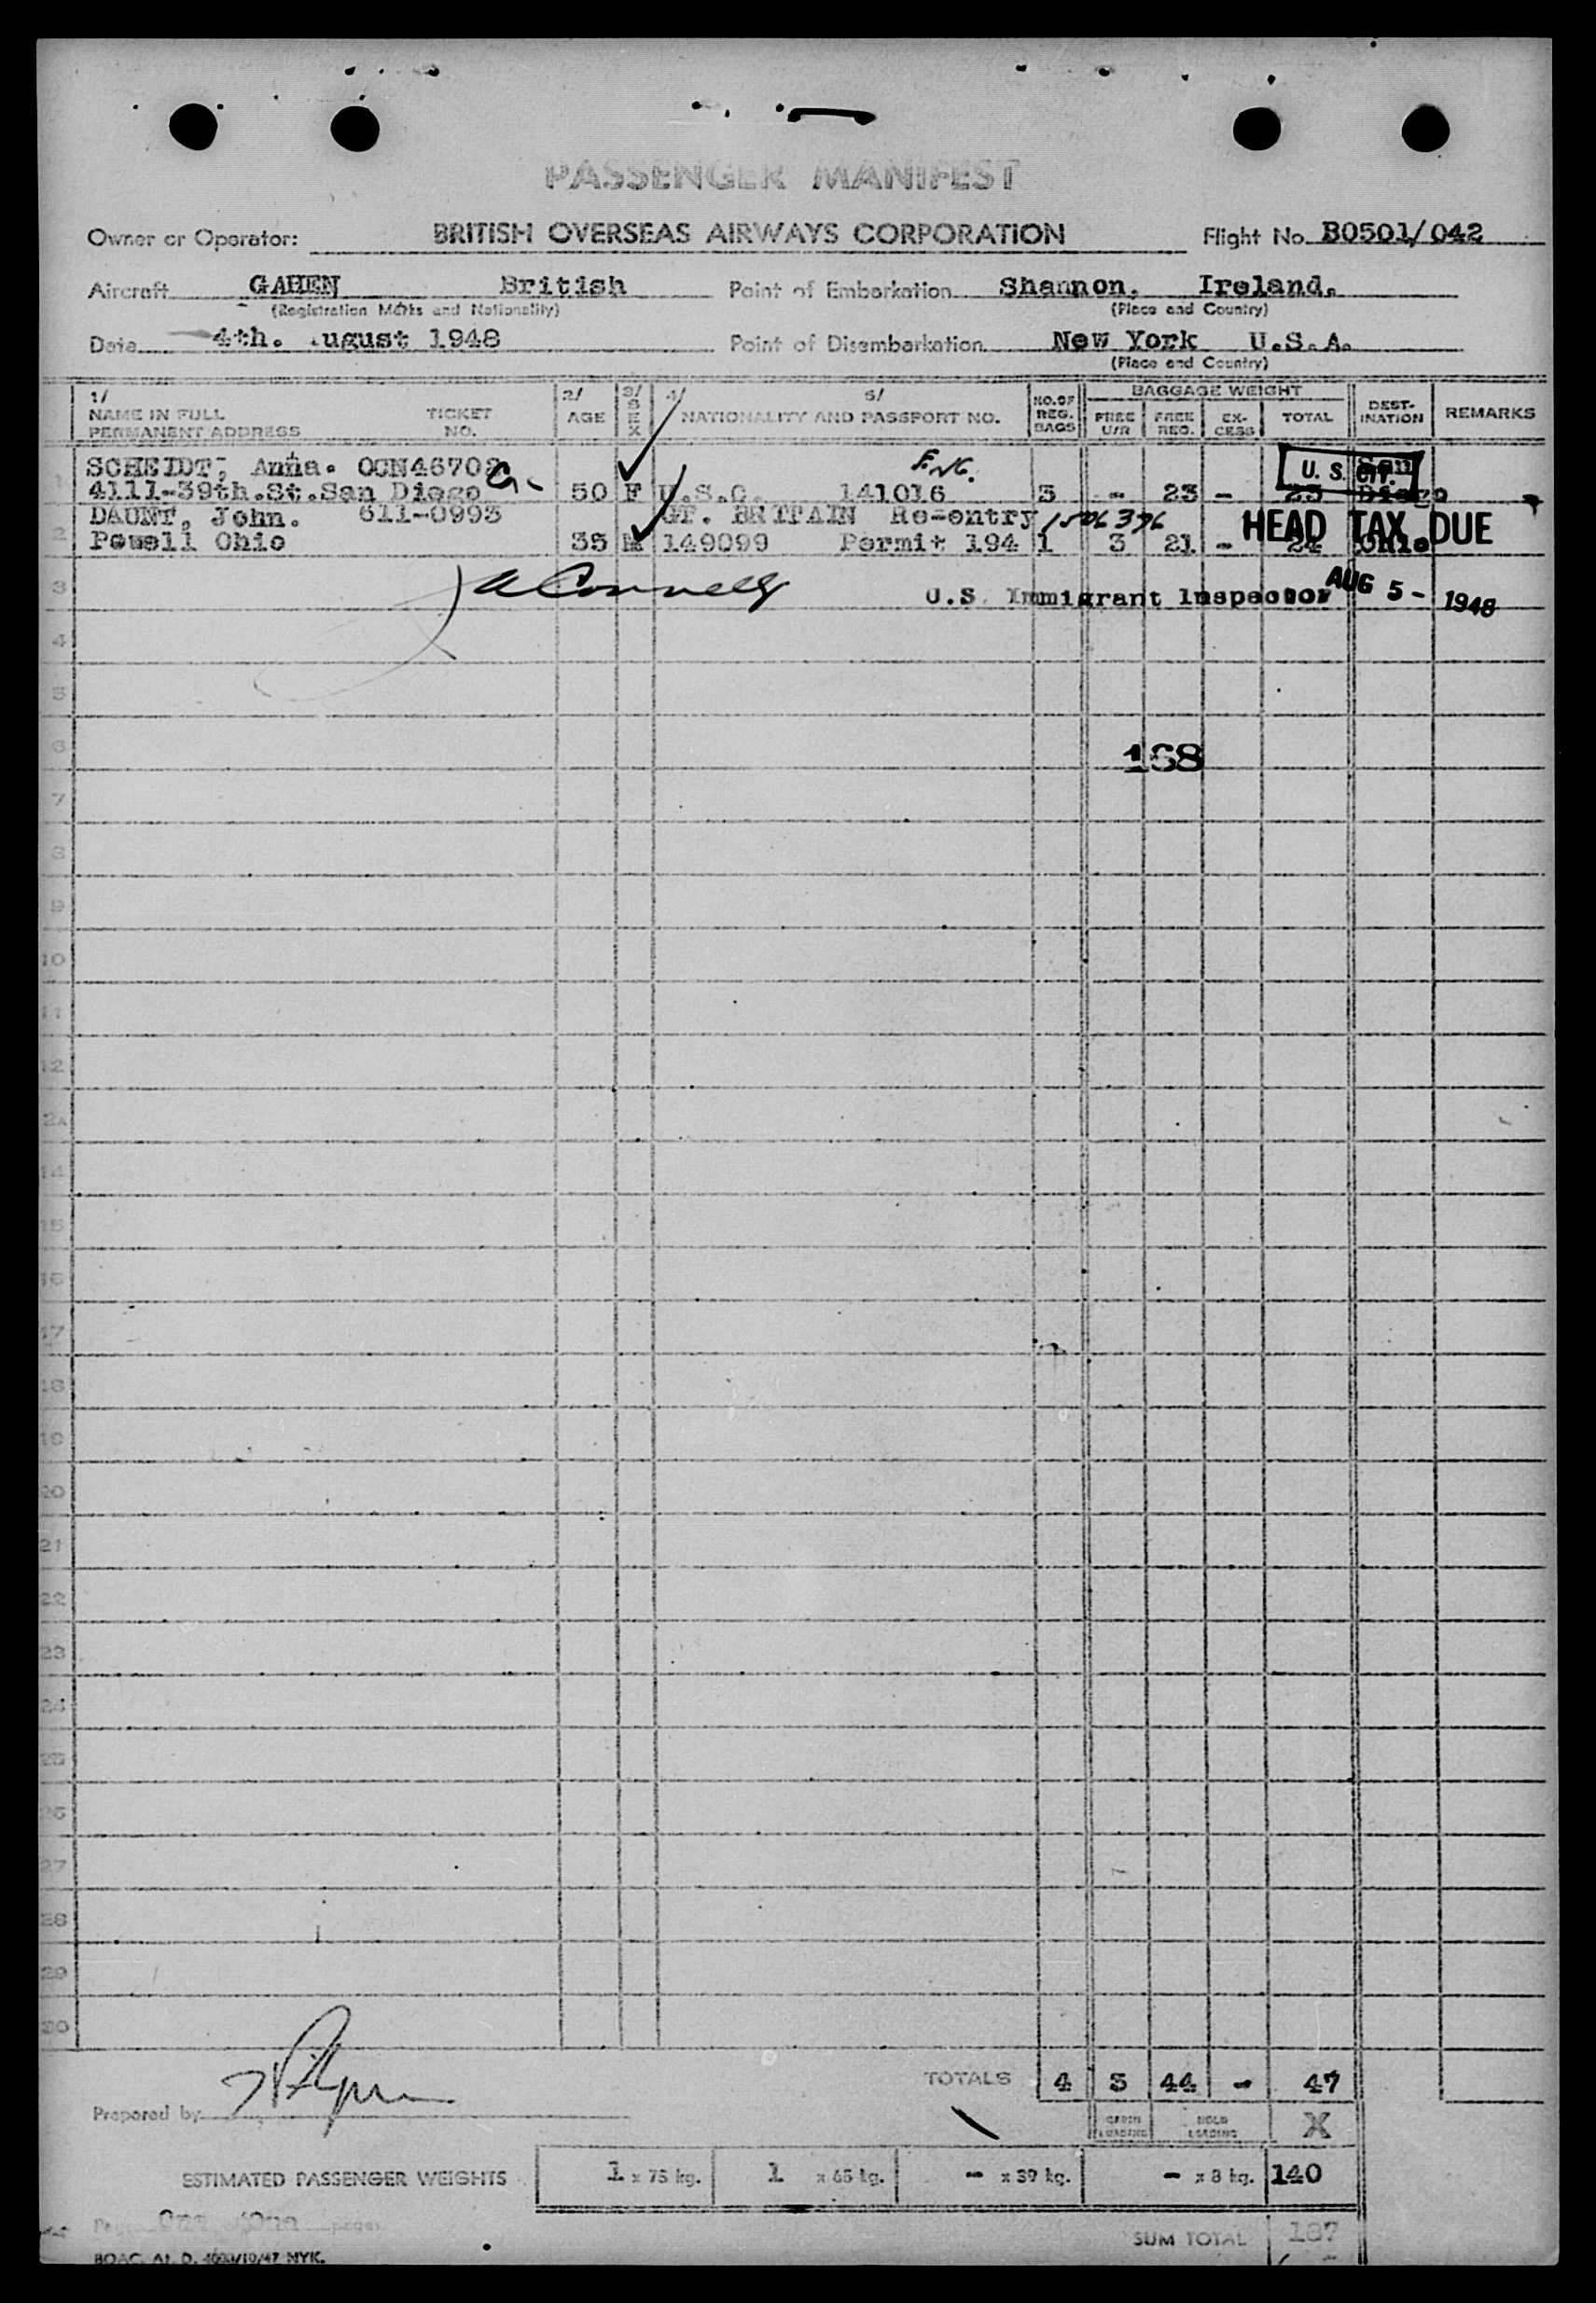 PASSENGER MANIFEST
Owner or Operator: BRITISH OVERSEAS AIRWAYS CORPORATION Flight No. B0501/042
Aircraft GAHEN British Point of Embarkation Shannon, Ireland.
(Registration Marks and Nationality) (Place and Country)
Date 4th. ugust 1948 Point of Disembarkation New York U.S.A.
(Place and Country)
1/ NAME IN FULL PERMANENT ADDRESS TICKET NO. 2/ AGE 3/ SEX 4/ NATIONALITY AND PASSPORT NO. 5/ NO. OF REG. BAGS BAGGAGE WEIGHT FREE U/R FREE REG. EX-CESS TOTAL DEST-INATION REMARKS
1 SCHEIDT, Anna. OCN46702 F.N.C. U. S. CIT. San
4111-39th.St.San Diego 50 F U.S.C. 141016 3 - 23 - 23 Diego
2 DAUNT, John. 611-0993 GT. BRITAIN Re-entry 1506376 HEAD TAX DUE
Powell Ohio 35 M 149099 Permit 194 1 3 21 - 24 Ohio
3 U.S. Immigrant Inspector AUG 5 - 1948
4
5
6 168
7
8
9
10
11
12
14
15
16
17
18
19
20
21
22
23
24
25
26
27
28
29
30
TOTALS 4 3 44 - 47
Prepared by CABIN LOADING HOLD LOADING X
ESTIMATED PASSENGER WEIGHTS 1 x 75 kg. 1 x 65 kg. - x 39 kg. - x 8 kg. 140
Page One pages
SUM TOTAL 187
BOAC. At. D. NYK.